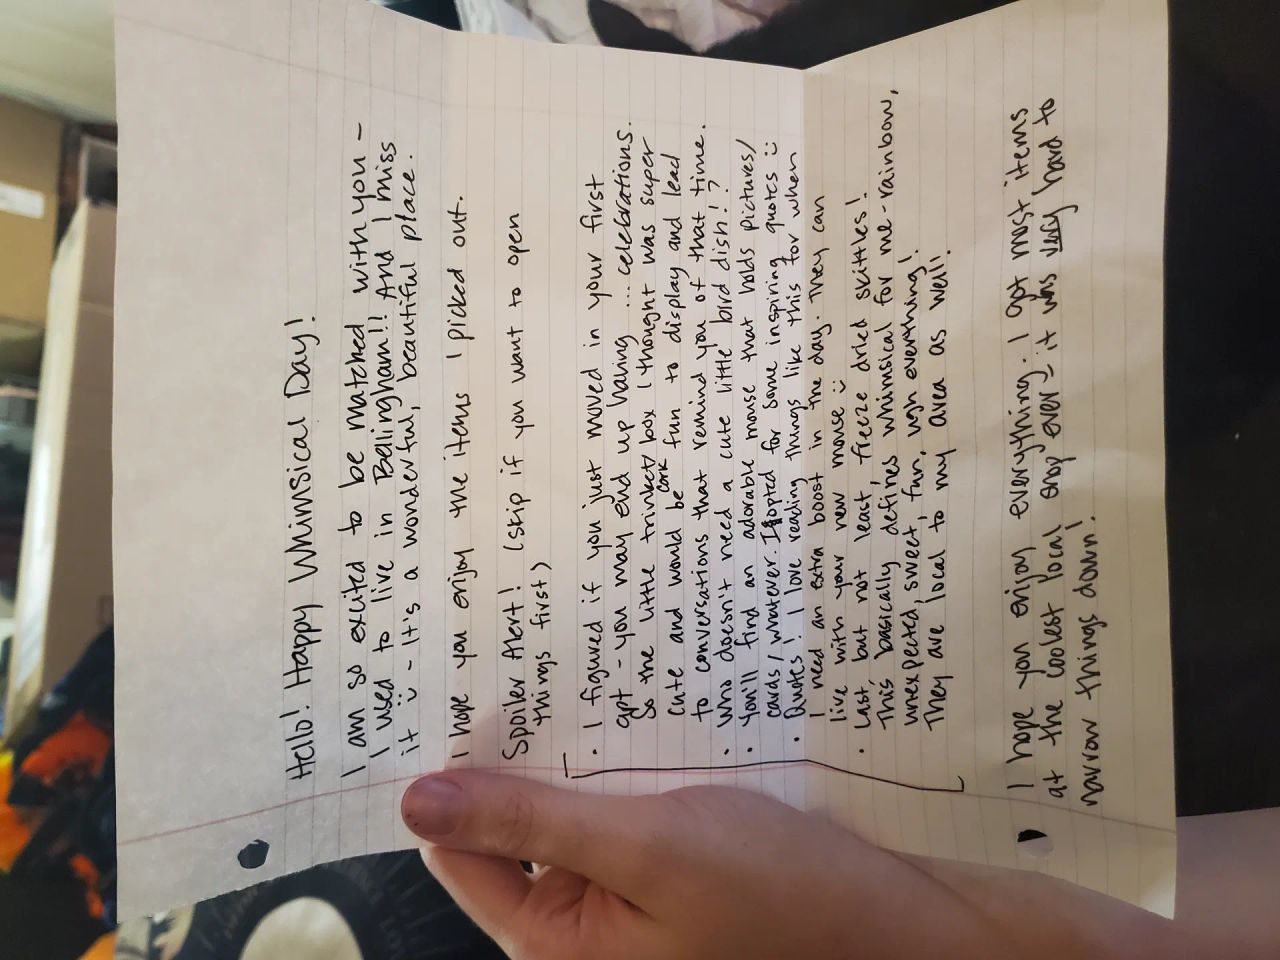 Hello! Happy Whimsical Day!
I am so excited to be matched with you -
I used to live in Bellingham!! And I miss
it :) - It's a wonderful, beautiful place.
I hope you enjoy the items I picked out.
Spoiler Alert! (skip if you want to open
things first)
• I figured if you just moved in your first
apt - you may end up having .... celebrations.
So the little trinket/cork box I thought was super
cute and would be fun to display and lead
to conversations that remind you of that time.
• Who doesn't need a cute little bird dish!?
• You'll find an adorable mouse that holds pictures/
cards/whatever. I opted for some inspiring quotes :)
• Quotes! I love reading things like this for when
I need an extra boost in the day. They can
live with your new mouse :)
• Last, but not least, freeze dried skittles!
This basically defines whimsical for me - rainbow,
unexpected, sweet, fun, ugh everything!
They are local to my area as well!
I hope you enjoy everything. I got most items
at the coolest local shop ever - it was very hard to
narrow things down!